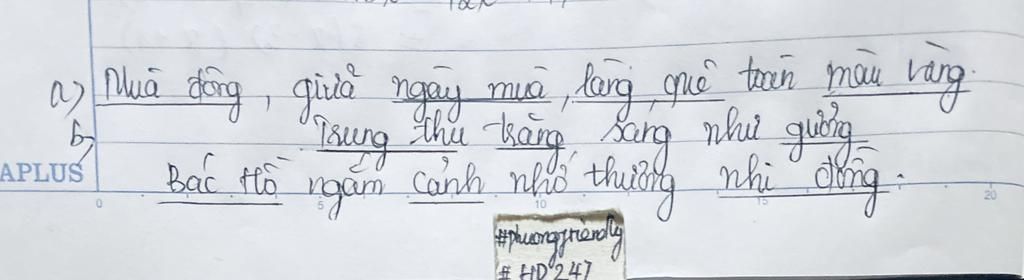 a) Mùa đông, giữa ngày mùa, làng quê toàn màu vàng.
b, Trung thu trăng sáng như gương
Bác Hồ ngắm cảnh nhớ thương nhi đồng.
APLUS
0 5 10 15 20
#phuongfriendly
# HD 247